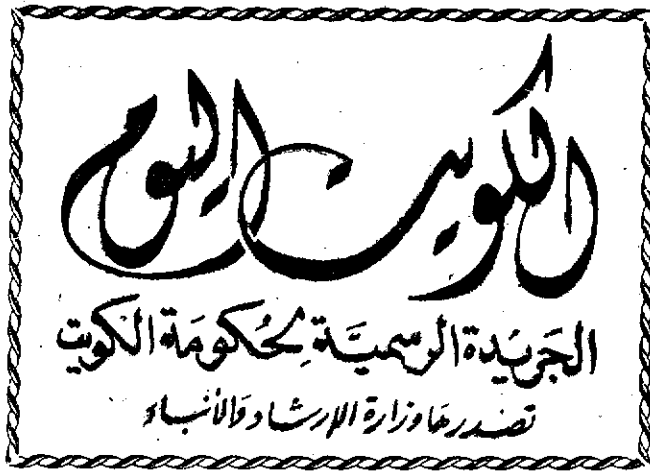 الكويت اليوم
الجَريْدة الرسميَّة لحُكومَة الكويت
تصدرها وزارة الإرشاد والأنباء